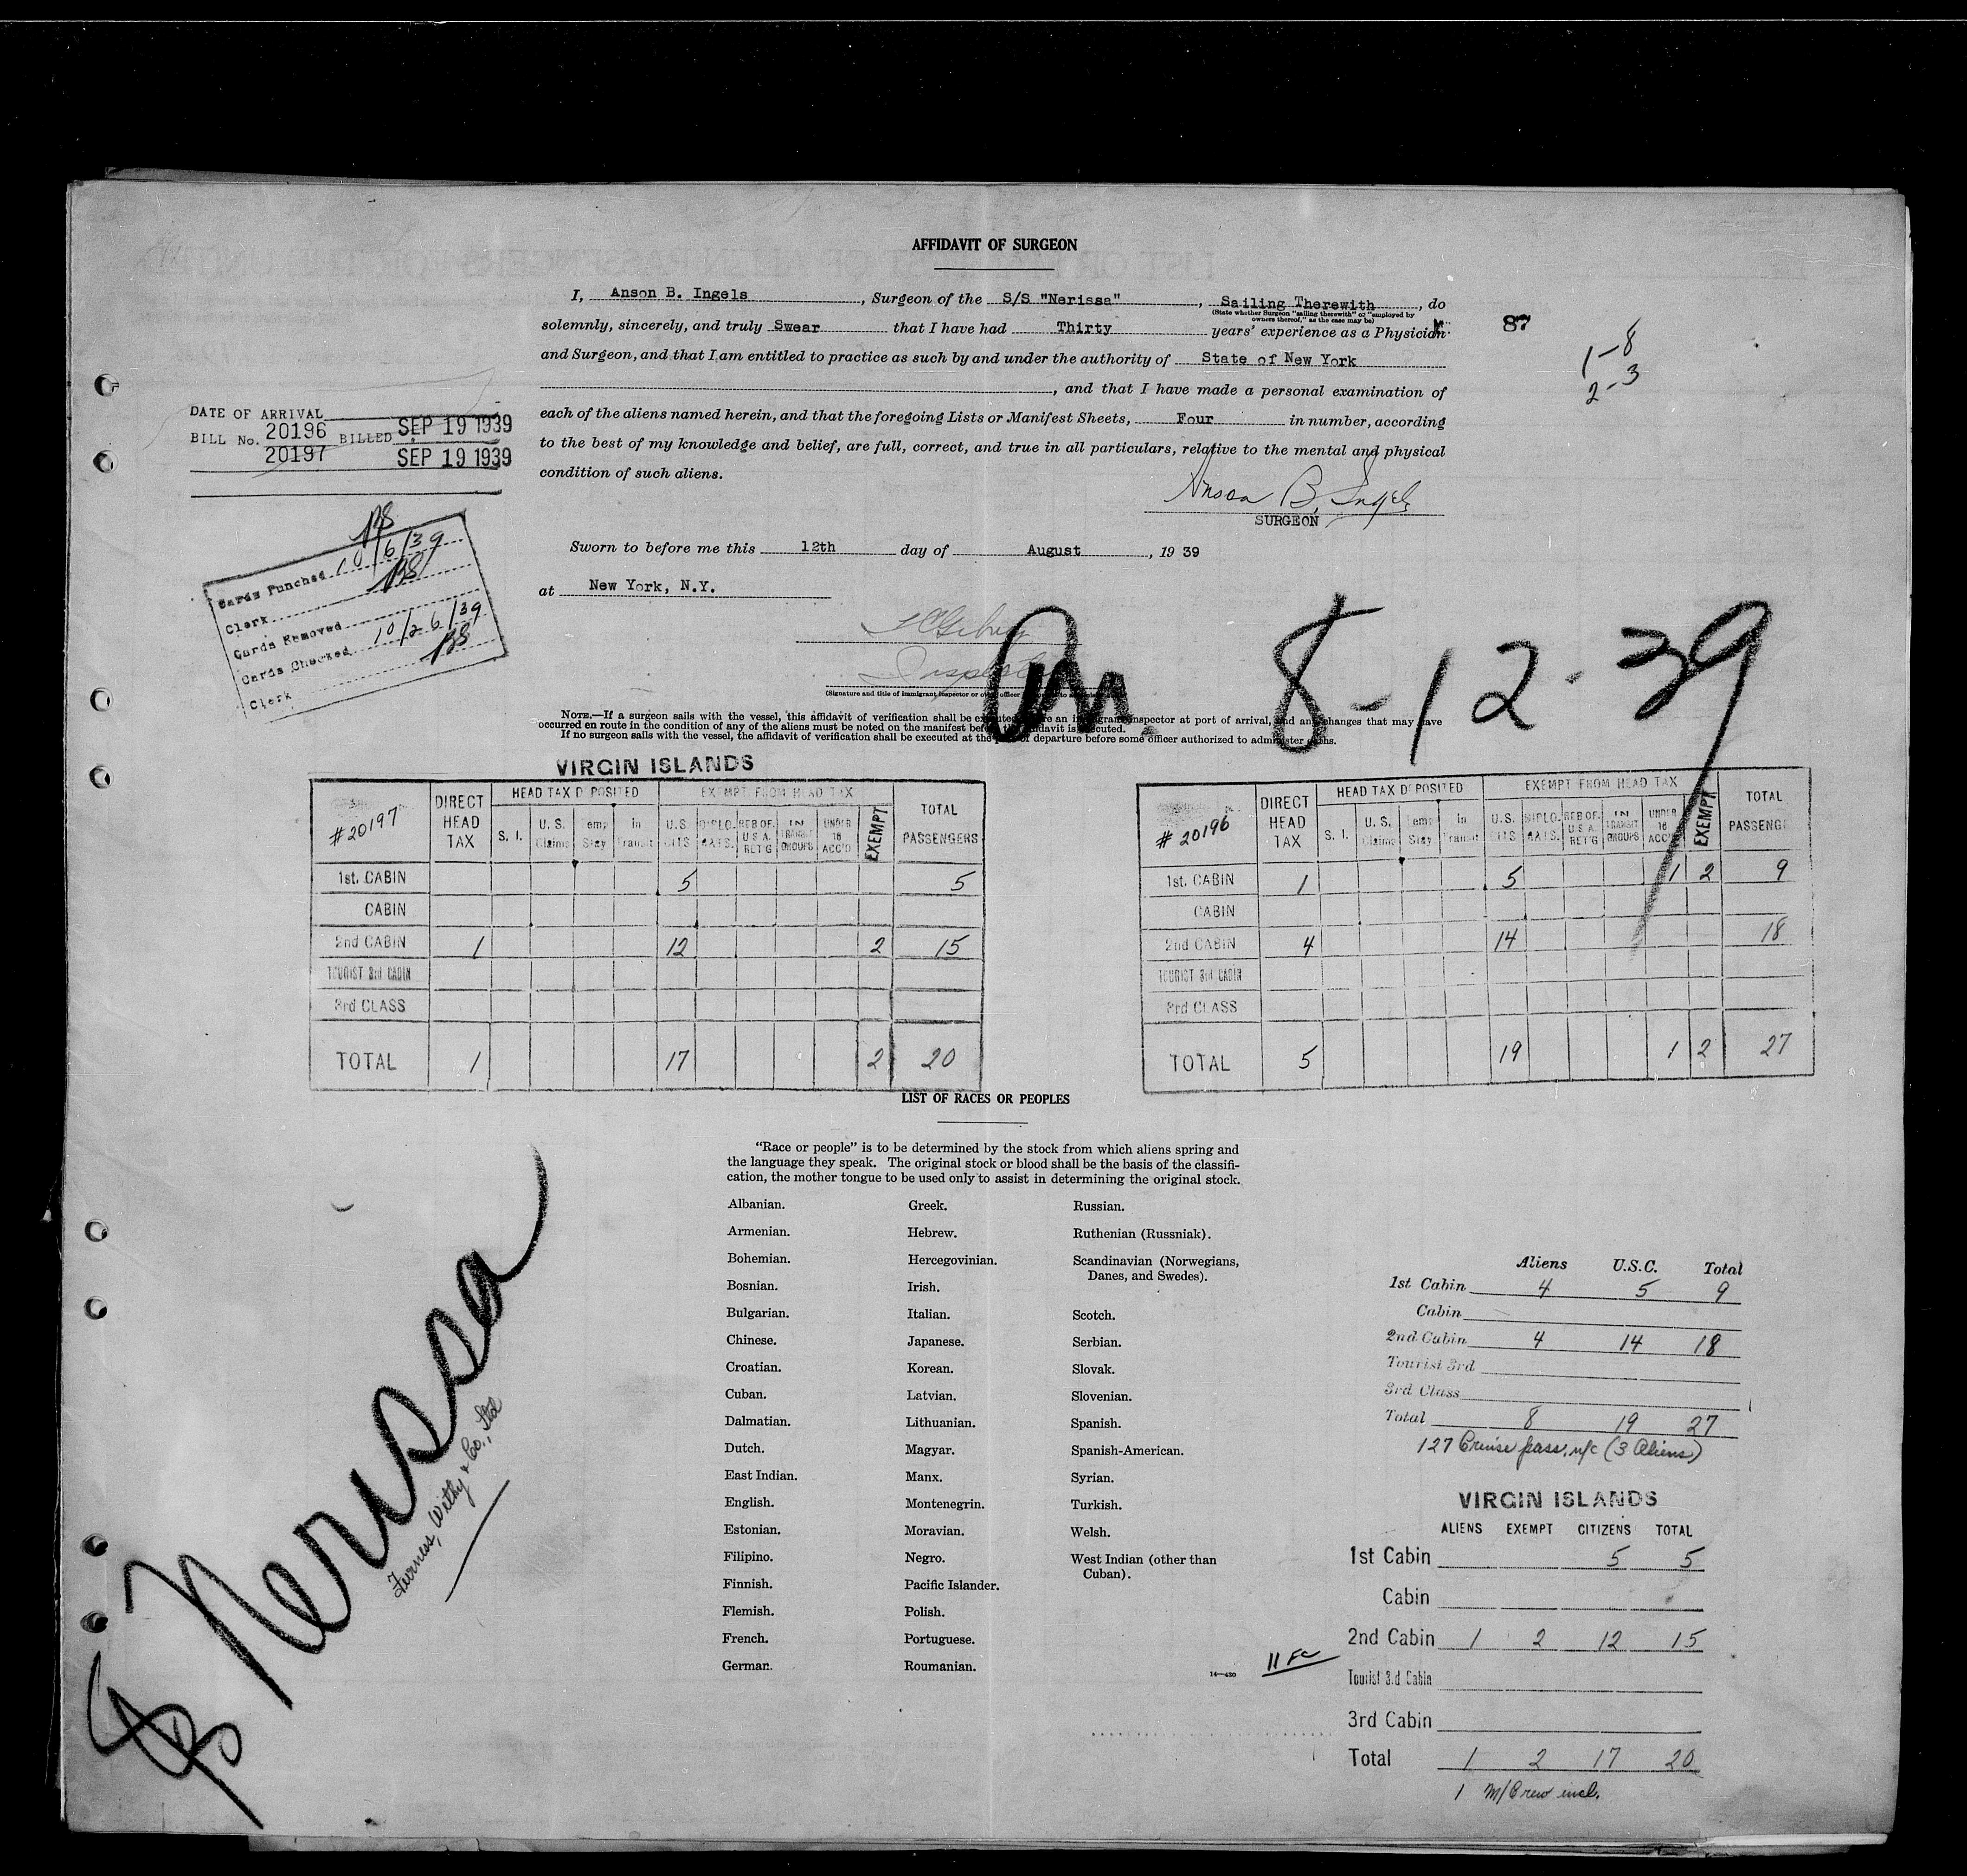 AFFIDAVIT OF SURGEON
I, Anson B. Ingels, Surgeon of the S/S "Nerissa", Sailing Therewith, do
(State whether Surgeon "sailing therewith" or "employed by
owners thereof," as the case may be)
solemnly, sincerely, and truly Swear that I have had Thirty years' experience as a Physician
87
and Surgeon, and that I am entitled to practice as such by and under the authority of State of New York
1-8
2-3
, and that I have made a personal examination of
each of the aliens named herein, and that the foregoing Lists or Manifest Sheets, Four in number, according
to the best of my knowledge and belief, are full, correct, and true in all particulars, relative to the mental and physical
condition of such aliens.
DATE OF ARRIVAL
BILL No. 20196 BILLED SEP 19 1939
20197 SEP 19 1939
Anson B. Ingels
SURGEON
Sworn to before me this 12th day of August, 19 39
at New York, N.Y.
Cards Punched 10/6/39
Clerk
Cards Removed
Cards Checked 10/26/39
Clerk
8-12-39
(Signature and title of immigrant inspector or
NOTE.—If a surgeon sails with the vessel, this affidavit of verification shall be executed before an immigrant inspector at port of arrival, and any changes that may have
occurred en route in the condition of any of the aliens must be noted on the manifest before the affidavit is executed.
If no surgeon sails with the vessel, the affidavit of verification shall be executed at the port of departure before some officer authorized to administer oaths.
VIRGIN ISLANDS
#20197 DIRECT HEAD TAX HEAD TAX DEPOSITED EXEMPT FROM HEAD TAX TOTAL PASSENGERS
S. I. U. S. Claims Temp Stay in Transit U.S. CITS DIPLO. MATS. REB OF. U.S.A. RET'G IN TRANSIT GROUPS UNDER 16 ACC'D EXEMPT
1st. CABIN 5 5
CABIN
2nd CABIN 1 12 2 15
TOURIST 3rd CABIN
3rd CLASS
TOTAL 1 17 2 20
#20196 DIRECT HEAD TAX HEAD TAX DEPOSITED EXEMPT FROM HEAD TAX TOTAL PASSENGE
S. I. U. S. Claims Temp Stay in Transit U.S. CITS DIPLO. MATS. REB OF. U.S.A. RET'G IN TRANSIT GROUPS UNDER 16 ACC'D EXEMPT
1st. CABIN 1 5 1 2 9
CABIN
2nd CABIN 4 14 18
TOURIST 3rd CABIN
3rd CLASS
TOTAL 5 19 1 2 27
LIST OF RACES OR PEOPLES
"Race or people" is to be determined by the stock from which aliens spring and
the language they speak. The original stock or blood shall be the basis of the classifi-
cation, the mother tongue to be used only to assist in determining the original stock.
Albanian.
Armenian.
Bohemian.
Bosnian.
Bulgarian.
Chinese.
Croatian.
Cuban.
Dalmatian.
Dutch.
East Indian.
English.
Estonian.
Filipino.
Finnish.
Flemish.
French.
German.
Greek.
Hebrew.
Hercegovinian.
Irish.
Italian.
Japanese.
Korean.
Latvian.
Lithuanian.
Magyar.
Manx.
Montenegrin.
Moravian.
Negro.
Pacific Islander.
Polish.
Portuguese.
Roumanian.
Russian.
Ruthenian (Russniak).
Scandinavian (Norwegians,
Danes, and Swedes).
Scotch.
Serbian.
Slovak.
Slovenian.
Spanish.
Spanish-American.
Syrian.
Turkish.
Welsh.
West Indian (other than
Cuban).
14—430
Nerissa
Furness, Withy & Co., Ltd
Aliens U.S.C. Total
1st Cabin 4 5 9
Cabin
2nd Cabin 4 14 18
Tourist 3rd
3rd Class
Total 8 19 27
127 Cruise pass. n/c (3 Aliens)
VIRGIN ISLANDS
ALIENS EXEMPT CITIZENS TOTAL
1st Cabin 5 5
Cabin
2nd Cabin 1 2 12 15
Tourist 3rd Cabin
3rd Cabin
Total 1 2 17 20
1 M/Crew incl.